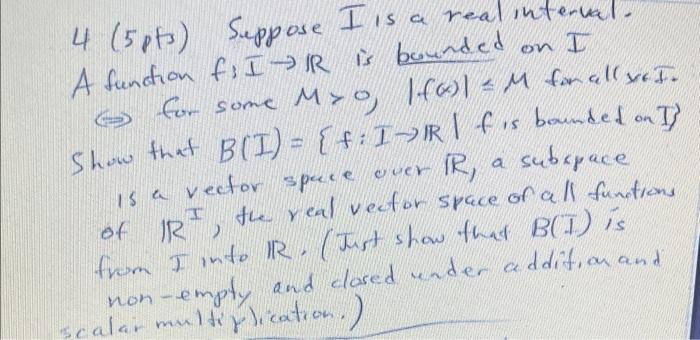 4 (5pts) Suppose I is a real interval.
A function f: I → ℝ is bounded on I
⟺ for some M > 0, |f(x)| ≤ M for all x∈I.
Show that B(I) = {f: I → ℝ | f is bounded on I}
is a vector space over ℝ, a subspace
of ℝ^I, the real vector space of all functions
from I into ℝ. (Just show that B(I) is
non-empty and closed under addition and
scalar multiplication.)